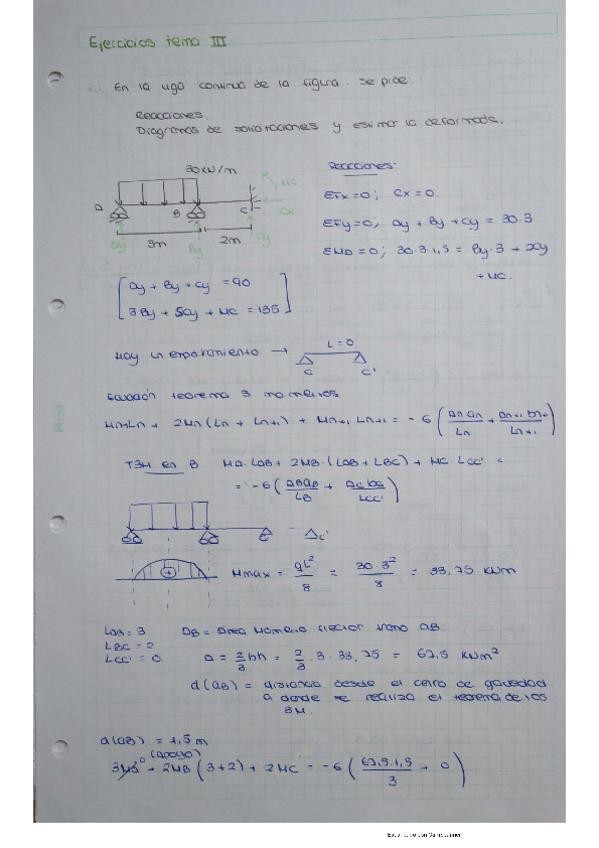 Ejercicios tema III
2. En la viga continua de la figura se pide:
Reacciones.
Diagramas de solicitaciones y estimar la deformada.
30 kN/m
Reacciones:
MC
a
B
C
Cx
ay
By
Cy
3m
2m
ΣFx = 0; Cx = 0.
ΣFy = 0; ay + By + Cy = 30·3
30·3·1,5 = By·3 +
+ MC.
ay + By + Cy = 90
3By + 5Cy + MC = 135
Hay un empotramiento →
L = 0
C C'
Ecuación teorema 3 momentos
+ 2Mn (Ln + Ln+1) + Mn+1 Ln+1 = - 6 ( an an / Ln + an+1 bn+1 / Ln+1 )
T3M en B MA·LAB + 2MB·(LAB + LBC) + MC·LCC' =
= -6 (
C'
Mmax = qL² / 8 = 30·3² / 8 = 33,75 kNm
LAB = 3
LBC = 2
LCC' = 0
= área momento flector tramo AB.
a = 2/3 bh = 2/3 · 3 · 33,75 = 67,5 kNm²
d(AB) = distancia desde el centro de gravedad
a donde se realiza el teorema de los
3M.
d(AB) = 1,5 m
(apoyo)
+ 2MB (3+2) + 2MC = -6 ( 67,5·1,5 / 3 + 0 )